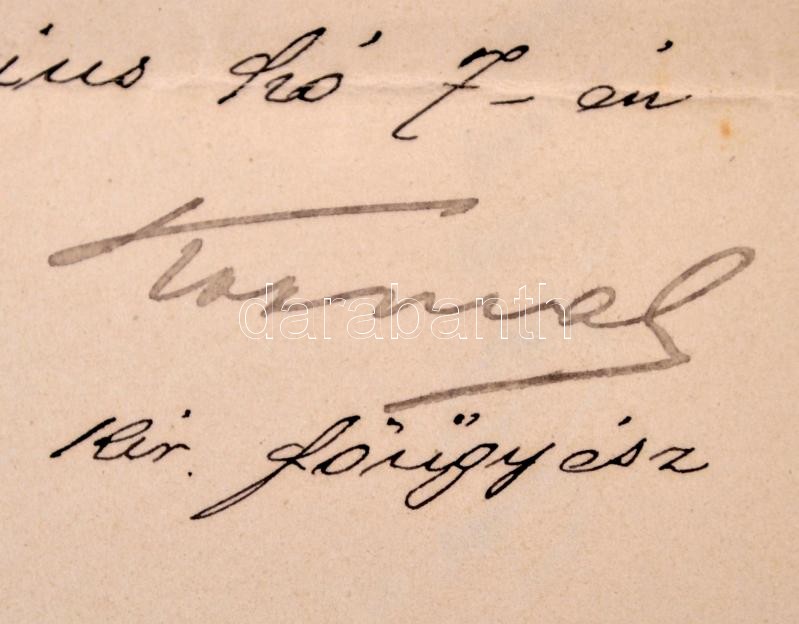 ius hó 7-én
darabanth
kir. főügyész